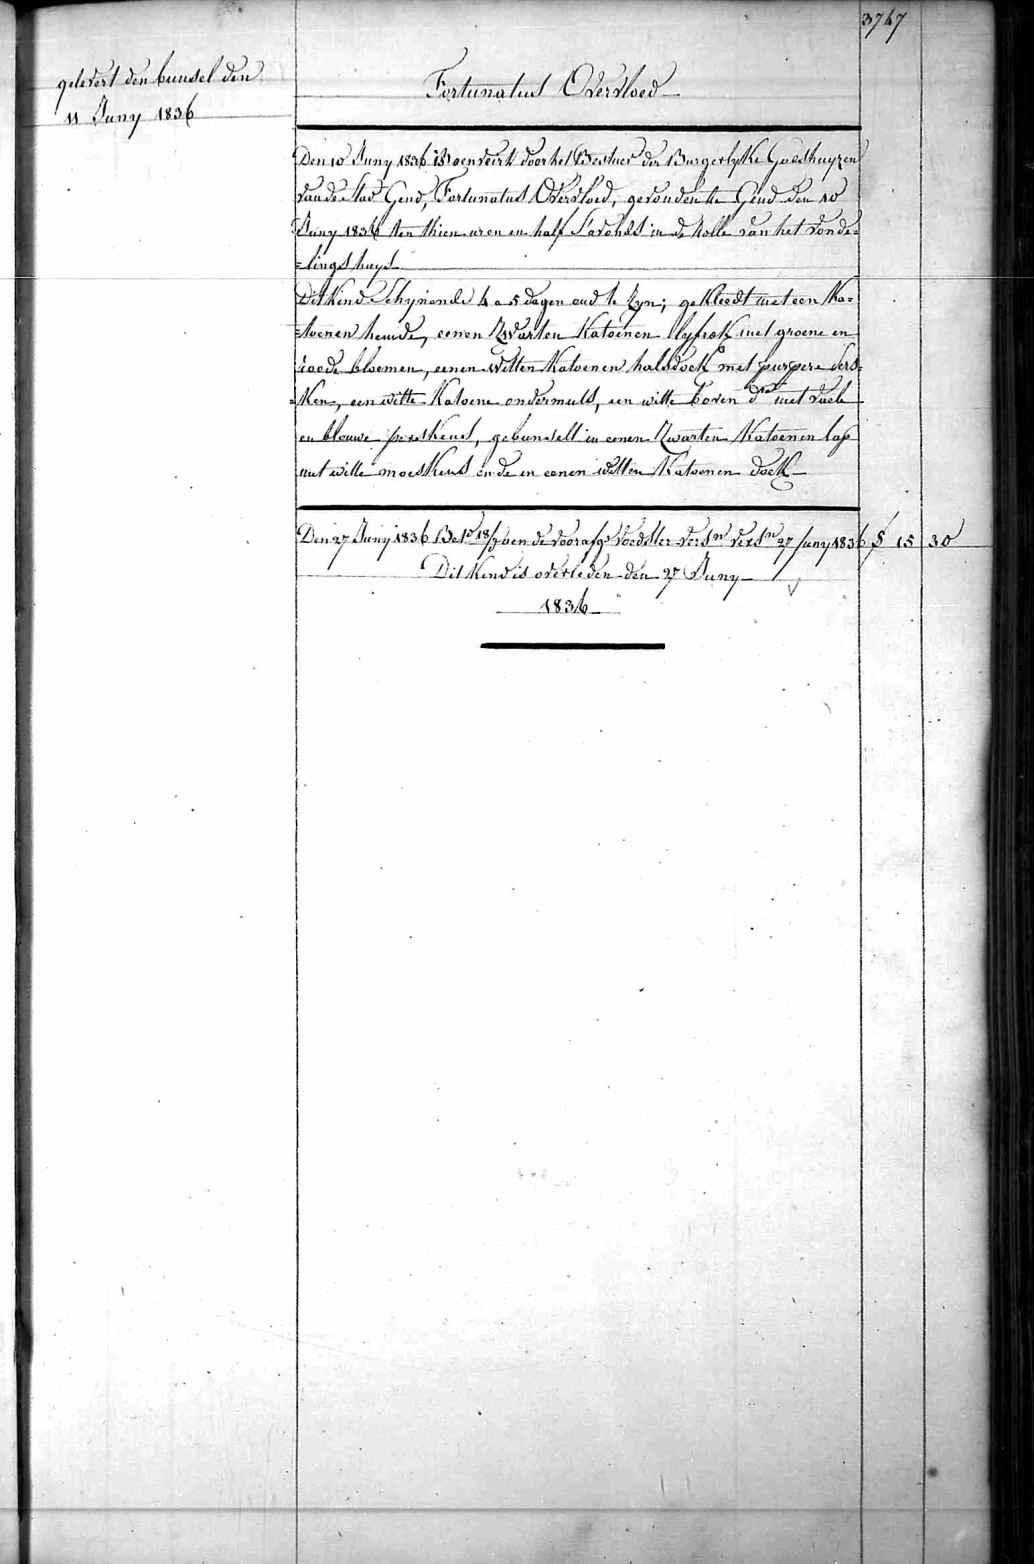 3747
gelevert den bunsel den
11 Juny 1836
Fortunatus Overvloed
Den 10 Juny 1836 is aenveirt door het Bestuer der Burgerlyke Godshuyzen
van de stad Gend, Fortunatus Overvloed, gevonden te Gend den 10
Juny 1836 ten thien uren en half savonds in de rolle van het vonde=
=lings huys
Dit kind schynende 4 a 5 dagen oud te zyn; gekleedt met een ka=
=toenen hemde, eenen zwarten katoenen lyfrok met groene en
roode bloemen, eenen witten katoenen halsdoek met purpere
=ken, een witte katoene ondermuts, een witte boven dto met
en blauwe pereskens, gebunselt in eenen zwarten katoenen lap
met witte moeskens ende in eenen witten katoenen doek
Den 27 Juny 1836 Bet 18/ aen de voorafge voedster 27 Juny 1836 15 30
Dit kind is overleden den 27 Juny
1836